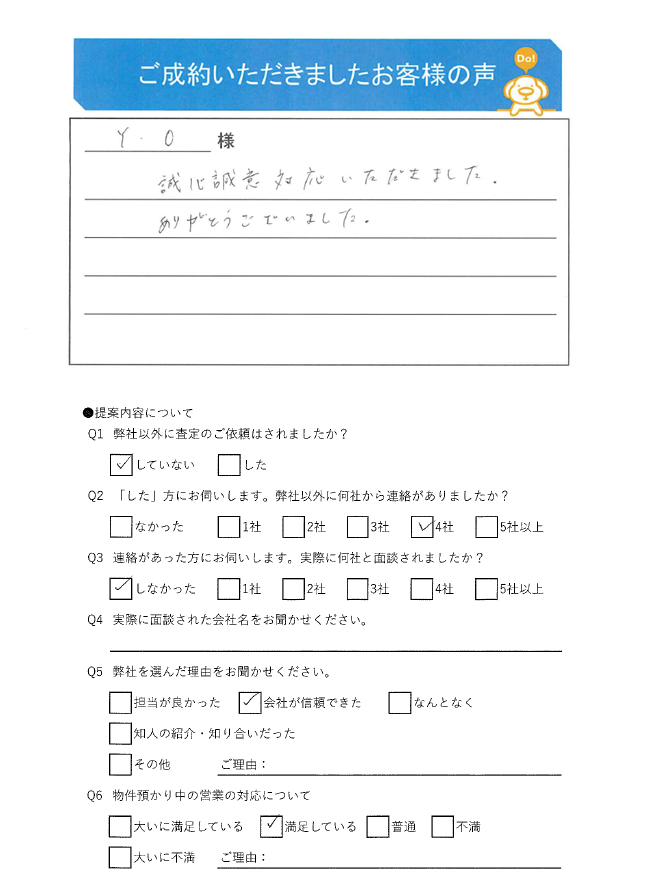 ご成約いただきましたお客様の声
Do!
Y.O 様
誠心誠意対応いただきました.
ありがとうございました.
●提案内容について
Q1 弊社以外に査定のご依頼はされましたか？
✓していない □した
Q2 「した」方にお伺いします。弊社以外に何社から連絡がありましたか？
□なかった □1社 □2社 □3社 ✓4社 □5社以上
Q3 連絡があった方にお伺いします。実際に何社と面談されましたか？
✓しなかった □1社 □2社 □3社 □4社 □5社以上
Q4 実際に面談された会社名をお聞かせください。
Q5 弊社を選んだ理由をお聞かせください。
□担当が良かった ✓会社が信頼できた □なんとなく
□知人の紹介・知り合いだった
□その他 ご理由：
Q6 物件預かり中の営業の対応について
□大いに満足している ✓満足している □普通 □不満
□大いに不満 ご理由：